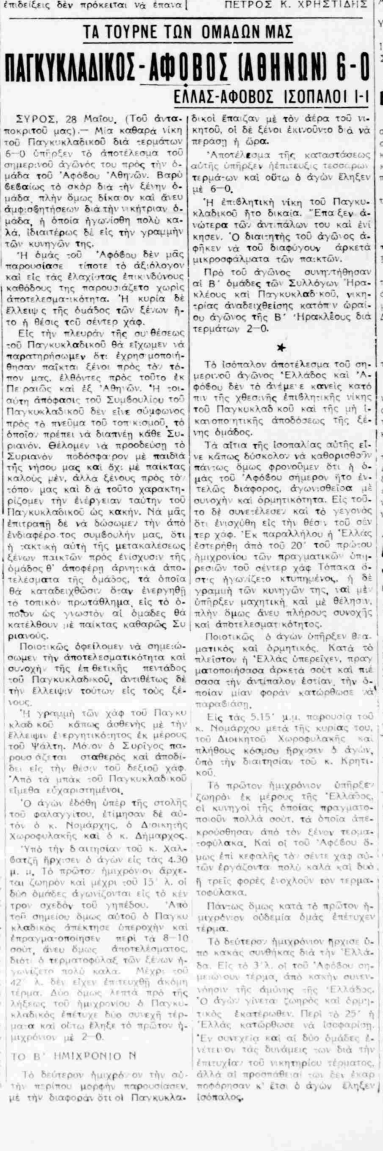 ἐπιδείξεις δὲν πρόκειται νὰ ἐπανα
ΠΕΤΡΟΣ Κ. ΧΡΗΣΤΙΔΗΣ
ΤΑ ΤΟΥΡΝΕ ΤΩΝ ΟΜΑΔΩΝ ΜΑΣ
ΠΑΓΚΥΚΛΑΔΙΚΟΣ-ΑΦΟΒΟΣ (ΑΘΗΝΩΝ) 6-0
ΕΛΛΑΣ-ΑΦΟΒΟΣ ΙΣΟΠΑΛΟΙ 1-1
ΣΥΡΟΣ, 28 Μαΐου, (Τοῦ ἀντα-
ποκριτοῦ μας).— Μία καθαρὰ νίκη
τοῦ Παγκυκλαδικοῦ διὰ τερμάτων
6—0 ὑπῆρξεν τὸ ἀποτέλεσμα τοῦ
σημερινοῦ ἀγῶνος του πρὸς τὴν ὁ-
μάδα τοῦ Ἀφόβου Ἀθηνῶν. Βαρὺ
βεβαίως τὸ σκὸρ διὰ τὴν ξένην ὁ-
μάδα, πλὴν ὅμως δίκαιον καὶ ἄνευ
ἀμφισβητήσεων διὰ τὴν νικήτριαν ὁ-
μάδα, ἡ ὁποία ἠγωνίσθη πολὺ κα-
λά, ἰδιαιτέρως δὲ εἰς τὴν γραμμὴν
τῶν κυνηγῶν της.
Ἡ ὁμὰς τοῦ Ἀφόβου δὲν μᾶς
παρουσίασε τίποτε τὸ ἀξιόλογον
καὶ εἰς τὰς ἐλαχίστας ἐπικινδύνους
καθόδους της παρουσιάζετο χωρὶς
ἀποτελεσματικότητα. Ἡ κυρία δὲ
ἔλλειψις τῆς ὁμάδος τῶν ξένων ἦ-
το ἡ θέσις τοῦ σέντερ χάφ.
Εἰς τὴν πλευρὰν τῆς συνθέσεως
τοῦ Παγκυκλαδικοῦ θὰ εἴχομεν νὰ
παρατηρήσωμεν ὅτι ἐχρησιμοποιή-
θησαν παῖκται ξένοι πρὸς τὸν τό-
πον μας, ἐλθόντες πρὸς τοῦτο ἐκ
Πειραιῶς καὶ ἐξ Ἀθηνῶν. Ἡ τοι-
αύτη ἀπόφασις τοῦ Συμβουλίου τοῦ
Παγκυκλαδικοῦ δὲν εἶνε σύμφωνος
πρὸς τὸ πνεῦμα τοῦ τοπικισμοῦ, τὸ
ὁποῖον πρέπει νὰ διαπνέῃ κάθε Συ-
ριανόν. Θέλομεν νὰ προοδεύσῃ τὸ
Συριανὸν ποδόσφαιρον μὲ παιδιὰ
τῆς νήσου μας καὶ ὄχι μὲ παίκτας
καλοὺς μέν, ἀλλὰ ξένους πρὸς τὸν
τόπον μας καὶ διὰ τοῦτο χαρακτη-
ρίζομεν τὴν ἐνέργειαν ταύτην τοῦ
Παγκυκλαδικοῦ ὡς κακήν. Νὰ μᾶς
ἐπιτραπῇ δὲ νὰ δώσωμεν τὴν ἀπὸ
ἐνδιαφέρον τος συμβουλήν μας, ὅτι
ἡ τακτικὴ αὐτὴ τῆς μετακαλέσεως
ξένων παικτῶν πρὸς ἐνίσχυσιν τῆς
ὁμάδος θ' ἀποφέρῃ ἀρνητικὰ ἀπο-
τελέσματα τῆς ὁμάδος, τὰ ὁποῖα
θὰ καταδειχθῶσιν ὅταν ἐνεργηθῇ
τὸ τοπικὸν πρωτάθλημα, εἰς τὸ ὁ-
ποῖον ὡς γνωστὸν αἱ ὁμάδες θὰ
κατέλθουν μὲ παίκτας καθαρῶς Συ-
ριανούς.
Ποιοτικῶς ὀφείλουμεν νὰ σημειώ-
σωμεν τὴν ἀποτελεσματικότητα καὶ
συνοχὴν τῆς ἐπιθετικῆς πεντάδος
τοῦ Παγκυκλαδικοῦ, ἀντιθέτως δὲ
τὴν ἔλλειψιν τούτων εἰς τοὺς ξέ-
νους.
Ἡ γραμμὴ τῶν χὰφ τοῦ Παγκυ
κλαδικοῦ κάπως ἀσθενὴς μὲ τὴν
ἔλλειψιν ἐνεργητικότητος ἐκ μέρους
τοῦ Ψάλτη. Μόνον ὁ Συρῖγος πα-
ρουσιάζεται σταθερὸς καὶ ἀποδί-
δει εἰς τὴν θέσιν τοῦ δεξιοῦ χάφ.
Ἀπὸ τὰ μπὰκ τοῦ Παγκυκλαδικοῦ
εἴμεθα εὐχαριστημένοι.
Ὁ ἀγὼν ἐδόθη ὑπὲρ τῆς στολῆς
τοῦ φαλαγγίτου, ἐτίμησαν δὲ αὐ-
τὸν ὁ κ. Νομάρχης, ὁ Διοικητὴς
Χωροφυλακῆς καὶ ὁ κ. Δήμαρχος.
Ὑπὸ τὴν διαιτησίαν τοῦ κ. Χαλ-
βατζῆ ἤρχισεν ὁ ἀγὼν εἰς τὰς 4.30
μ. μ. Τὸ πρῶτον ἡμιχρόνιον ἄρχε-
ται ζωηρὸν καὶ μέχρι τοῦ 15' λ. οἱ
δύο ὁμάδες ἀγωνίζονται εἰς τὸ κέν-
τρον σχεδὸν τοῦ γηπέδου. Ἀπὸ
τοῦ σημείου ὅμως αὐτοῦ ὁ Παγκυ
κλαδικὸς ἀπέκτησε ὑπεροχὴν καὶ
ἐπραγματοποίησεν περὶ τὰ 8—10
σούτ, ἄνευ ὅμως ἀποτελέσματος,
διότι ὁ τερματοφύλαξ τῶν ξένων ἠ-
γωνίζετο πολὺ καλά. Μέχρι τοῦ
42' λ. δὲν εἶχεν ἐπιτευχθῆ ἀκόμη
τέρμα. Δύο ὅμως λεπτὰ πρὸ τῆς
λήξεως τοῦ ἡμιχρονίου ὁ Παγκυ-
κλαδικὸς ἐπέτυχε δύο συνεχῆ τέρ-
ματα καὶ οὕτω ἔληξε τὸ πρῶτον ἡ-
μιχρόνιον μὲ 2—0.
ΤΟ Β' ΗΜΙΧΡΟΝΙΟΝ
Τὸ δεύτερον ἡμιχρόνιον τὴν αὐ-
τὴν περίπου μορφὴν παρουσίασεν,
μὲ τὴν διαφορὰν ὅτι οἱ Παγκυκλα-
δικοὶ ἔπαιζαν μὲ τὸν ἀέρα τοῦ νι-
κητοῦ, οἱ δὲ ξένοι ἐκινοῦντο διὰ νὰ
περάσῃ ἡ ὥρα.
Ἀποτέλεσμα τῆς καταστάσεως
αὐτῆς ὑπῆρξεν ἡ ἐπίτευξις τεσσάρων
τερμάτων καὶ οὕτω ὁ ἀγὼν ἔληξεν
μὲ 6—0.
Ἡ ἐπιβλητικὴ νίκη τοῦ Παγκυ-
κλαδικοῦ ἦτο δικαία. Ἔπαιξεν ἀ-
νώτερα τῶν ἀντιπάλων του καὶ ἐνί
κησεν. Ὁ διαιτητὴς τοῦ ἀγῶνος ἀ-
φῆκεν νὰ τοῦ διαφύγουν ἀρκετὰ
μικροσφάλματα τῶν παικτῶν.
Πρὸ τοῦ ἀγῶνος συνηντήθησαν
αἱ Β' ὁμάδες τῶν Συλλόγων Ἡρα-
κλέους καὶ Παγκυκλαδικοῦ, νική-
τριας ἀναδειχθείσης κατόπιν ὡραί-
ου ἀγῶνος τῆς Β' Ἡρακλέους διὰ
τερμάτων 2—0.
★
Τὸ ἰσόπαλον ἀποτέλεσμα τοῦ ση-
μερινοῦ ἀγῶνος Ἑλλάδος καὶ Ἀ-
φόβου δὲν τὸ ἀνέμενε κανεὶς κατό
πιν τῆς χθεσινῆς ἐπιβλητικῆς νίκης
τοῦ Παγκυκλαδικοῦ καὶ τῆς μὴ ἱ-
κανοποιητικῆς ἀποδόσεως τῆς ξέ-
νης ὁμάδος.
Τὰ αἴτια τῆς ἰσοπαλίας αὐτῆς εἶ-
νε κάπως δύσκολον νὰ καθορισθοῦν
πάντως ὅμως φρονοῦμεν ὅτι ἡ ὁ-
μὰς τοῦ Ἀφόβου σήμερον ἦτο ἐν-
τελῶς διάφορος, ἀγωνισθεῖσα μὲ
συνοχὴν καὶ ὁρμητικότητα. Εἰς τοῦ-
το δὲ συνετέλεσε καὶ τὸ γεγονὸς
ὅτι ἐνισχύθη εἰς τὴν θέσιν τοῦ σέν
τερ χάφ. Ἐκ παραλλήλου ἡ Ἑλλὰς
ἐστερήθη ἀπὸ τοῦ 20' τοῦ πρώτου
ἡμιχρονίου τῶν πραγματικῶν ὑπη-
ρεσιῶν τοῦ σέντερ χὰφ Τόπακα ὅ-
στις ἠγωνίζετο κτυπημένος, ἡ δὲ
γραμμὴ τῶν κυνηγῶν της, ναὶ μὲν
ὑπῆρξεν μαχητικὴ καὶ μὲ θέλησιν,
πλὴν ὅμως ἄνευ πλήρους συνοχῆς
καὶ ἀποτελεσματικότητος.
Ποιοτικῶς ὁ ἀγὼν ὑπῆρξεν θεα-
ματικὸς καὶ ὁρμητικός. Κατὰ τὸ
πλεῖστον ἡ Ἑλλὰς ὑπερεῖχεν, πραγ
ματοποιήσασα ἀρκετὰ σοὺτ καὶ πιέ-
σασα τὴν ἀντίπαλον ἑστίαν, τὴν ὁ-
ποίαν μίαν φορὰν κατώρθωσε νὰ
παραδιάσῃ.
Εἰς τὰς 5.15' μ.μ. παρουσίᾳ τοῦ
κ. Νομάρχου μετὰ τῆς κυρίας του,
τοῦ Διοικητοῦ Χωροφυλακῆς καὶ
πλήθους κόσμου ἤρχισεν ὁ ἀγών,
ὑπὸ τὴν διαιτησίαν τοῦ κ. Κρητι-
κοῦ.
Τὸ πρῶτον ἡμιχρόνιον ὑπῆρξεν
ζωηρὸν ἐκ μέρους τῆς Ἑλλάδος,
οἱ κυνηγοὶ τῆς ὁποίας πραγματο-
ποιοῦν πολλὰ σούτ, τὰ ὁποῖα ἀπε-
κρούσθησαν ἀπὸ τὸν ξένον τερμα-
τοφύλακα. Καὶ οἱ τοῦ Ἀφόβου ὅ-
μως ἐπὶ κεφαλῆς τὸ σέντερ χὰφ αὐ-
τῶν ἐργάζονται πολὺ καλὰ καὶ δύο
ἢ τρεῖς φορὲς ἐνοχλοῦν τὸν τερμα-
τοφύλακα.
Πάντως ὅμως κατὰ τὸ πρῶτον ἡ-
μιχρόνιον οὐδεμία ὁμὰς ἐπέτυχεν
τέρμα.
Τὸ δεύτερον ἡμιχρόνιον ἤρχισε ὑ-
πὸ κακὰς συνθήκας διὰ τὴν Ἑλλά-
δα. Εἰς τὸ 3' λ. οἱ τοῦ Ἀφόβου ση-
μειώνουν τέρμα, ἀπὸ κακὴν συνεν-
νόησιν τῆς ἀμύνης τῆς Ἑλλάδος.
Ὁ ἀγὼν γίνεται ζωηρὸς καὶ ὁρμη-
τικὸς ἑκατέρωθεν. Περὶ τὸ 25' ἡ
Ἑλλὰς κατώρθωσε νὰ ἰσοφαρίσῃ.
Ἐν συνεχείᾳ καὶ αἱ δύο ὁμάδες ἐ-
νέτεινον τὰς δυνάμεις των διὰ τὴν
ἐπιτυχίαν τοῦ νικητηρίου τέρματος,
ἀλλὰ αἱ προσπάθειαί των δὲν ἐκαρ
ποφόρησαν κ' ἔτσι ὁ ἀγὼν ἔληξεν
ἰσόπαλος.